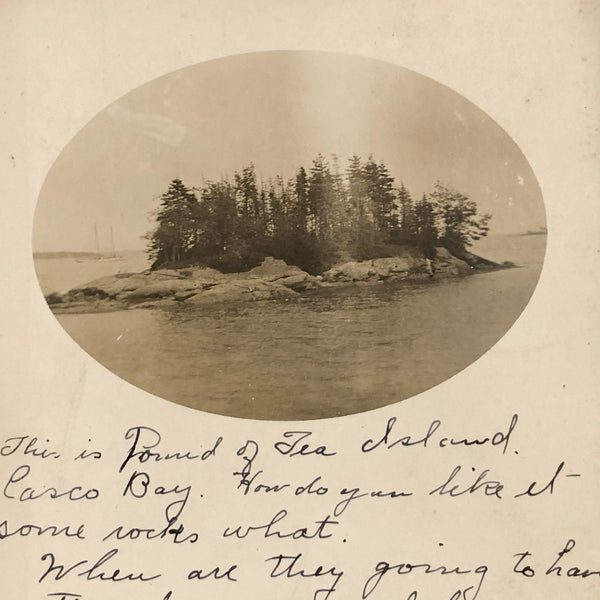 This is Pound of Tea Island.
Casco Bay. How do you like it
some rocks what.
When are they going to hav